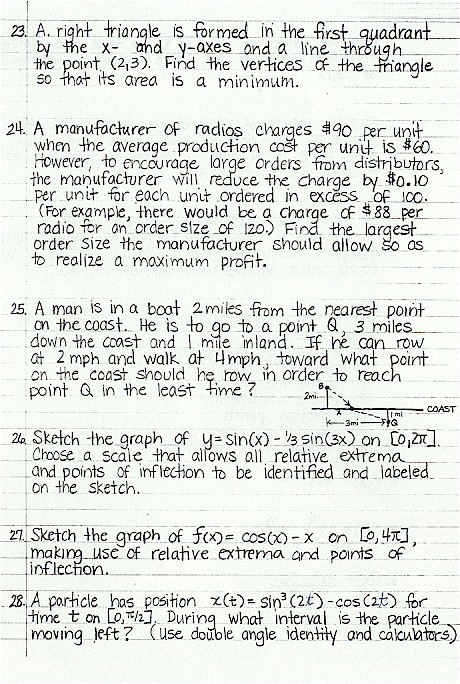 23. A. right triangle is formed in the first quadrant
by the x- and y-axes and a line through
the point (2,3). Find the vertices of the triangle
so that its area is a minimum.
24. A manufacturer of radios charges $90 per unit
when the average production cost per unit is $60.
However, to encourage large orders from distributors,
the manufacturer will reduce the charge by $0.10
per unit for each unit ordered in excess of 100.
(For example, there would be a charge of $88 per
radio for an order size of 120.) Find the largest
order size the manufacturer should allow so as
to realize a maximum profit.
25. A man is in a boat 2 miles from the nearest point
on the coast. He is to go to a point Q, 3 miles
down the coast and 1 mile inland. If he can row
at 2 mph and walk at 4 mph, toward what point
on the coast should he row in order to reach
point Q in the least time?
B
2mi.
COAST
x
1 mi
3mi
Q
26. Sketch the graph of y = sin(x) - 1/3 sin(3x) on [0,2π].
Choose a scale that allows all relative extrema
and points of inflection to be identified and labeled
on the sketch.
27. Sketch the graph of f(x) = cos(x) - x on [0,4π],
making use of relative extrema and points of
inflection.
28. A particle has position x(t) = sin³(2t) - cos(2t) for
time t on [0,π/2]. During what interval is the particle
moving left? (Use double angle identity and calculators)